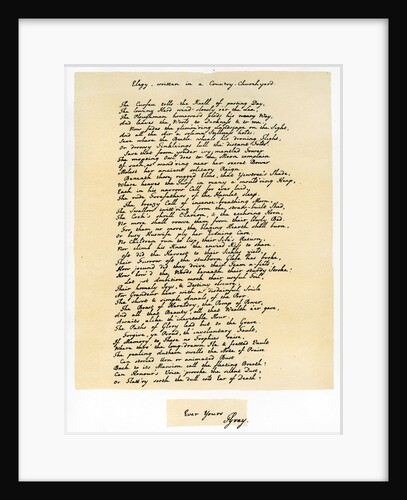 Elegy, written in a Country-Churchyard
The Curfew tolls the Knell of parting Day,
The lowing Herd wind slowly o'er the Lea,
The Ploughman homeward plods his weary Way,
And leaves the World to Darkness & to me.
Now fades the glimm'ring Landscape on the Sight,
And all the Air a solemn Stillness holds;
Save where the Beetle wheels his droning Flight,
Or drowsy Tinklings lull the distant Folds.
Save that from yonder ivy-mantled Tower
The mopeing Owl does to the Moon complain
Of such, as wand'ring near her secret Bower
Molest her ancient solitary Reign.
Beneath those rugged Elms, that Yewtree's Shade,
Where heaves the Turf in many a mould'ring Heap,
Each in his narrow Cell for ever laid,
The rude Forefathers of the Hamlet sleep.
The breezy Call of incense-breathing Morn,
The Swallow twitt'ring from the straw-built Shed,
The Cock's shrill Clarion, & the echoing Horn,
No more shall rouse them from their lowly Bed.
For them no more the blazing Hearth shall burn,
Or busy Huswife ply her Evening Care
No Children run to lisp their Sire's Return,
Nor climb his Knees the envied Kiss to share.
Oft did the Harvest to their Sickle yield,
Their Furrow oft the stubborn Glebe has broke;
How jocund did they drive their Team a-field!
How bow'd the Woods beneath their sturdy Stroke!
Let not Ambition mock their useful Toil,
Their homely Joys, & Destiny obscure;
Nor Grandeur hear with a disdainful Smile
The short & simple Annals of the Poor.
The Boast of Heraldry, the Pomp of Power,
And all that Beauty, all that Wealth e'er gave,
Awaits alike th' inevitable Hour.
The Paths of Glory lead but to the Grave.
Forgive, ye Proud, th' involuntary Fault,
If Memory to These no Trophies raise,
Where thro' the long-drawn Ile & fretted Vault
The pealing Anthem swells the Note of Praise.
Can storied Urn or animated Bust
Back to its Mansion call the fleeting Breath?
Can Honour's Voice provoke the silent Dust,
Or Flatt'ry sooth the dull cold Ear of Death?
Ever Yours
TGray.